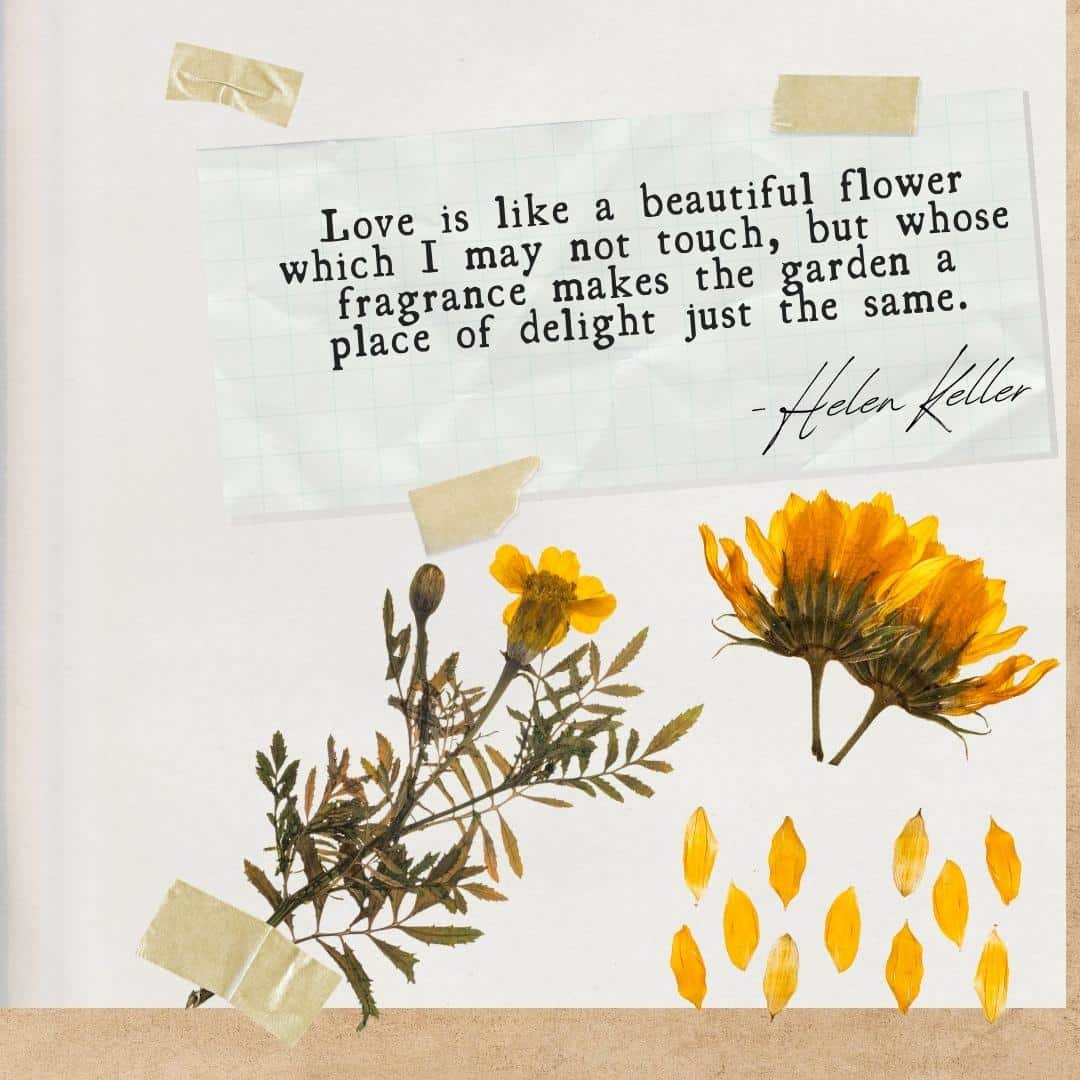 Love is like a beautiful flower
which I may not touch, but whose
fragrance makes the garden a
place of delight just the same.
- Helen Keller